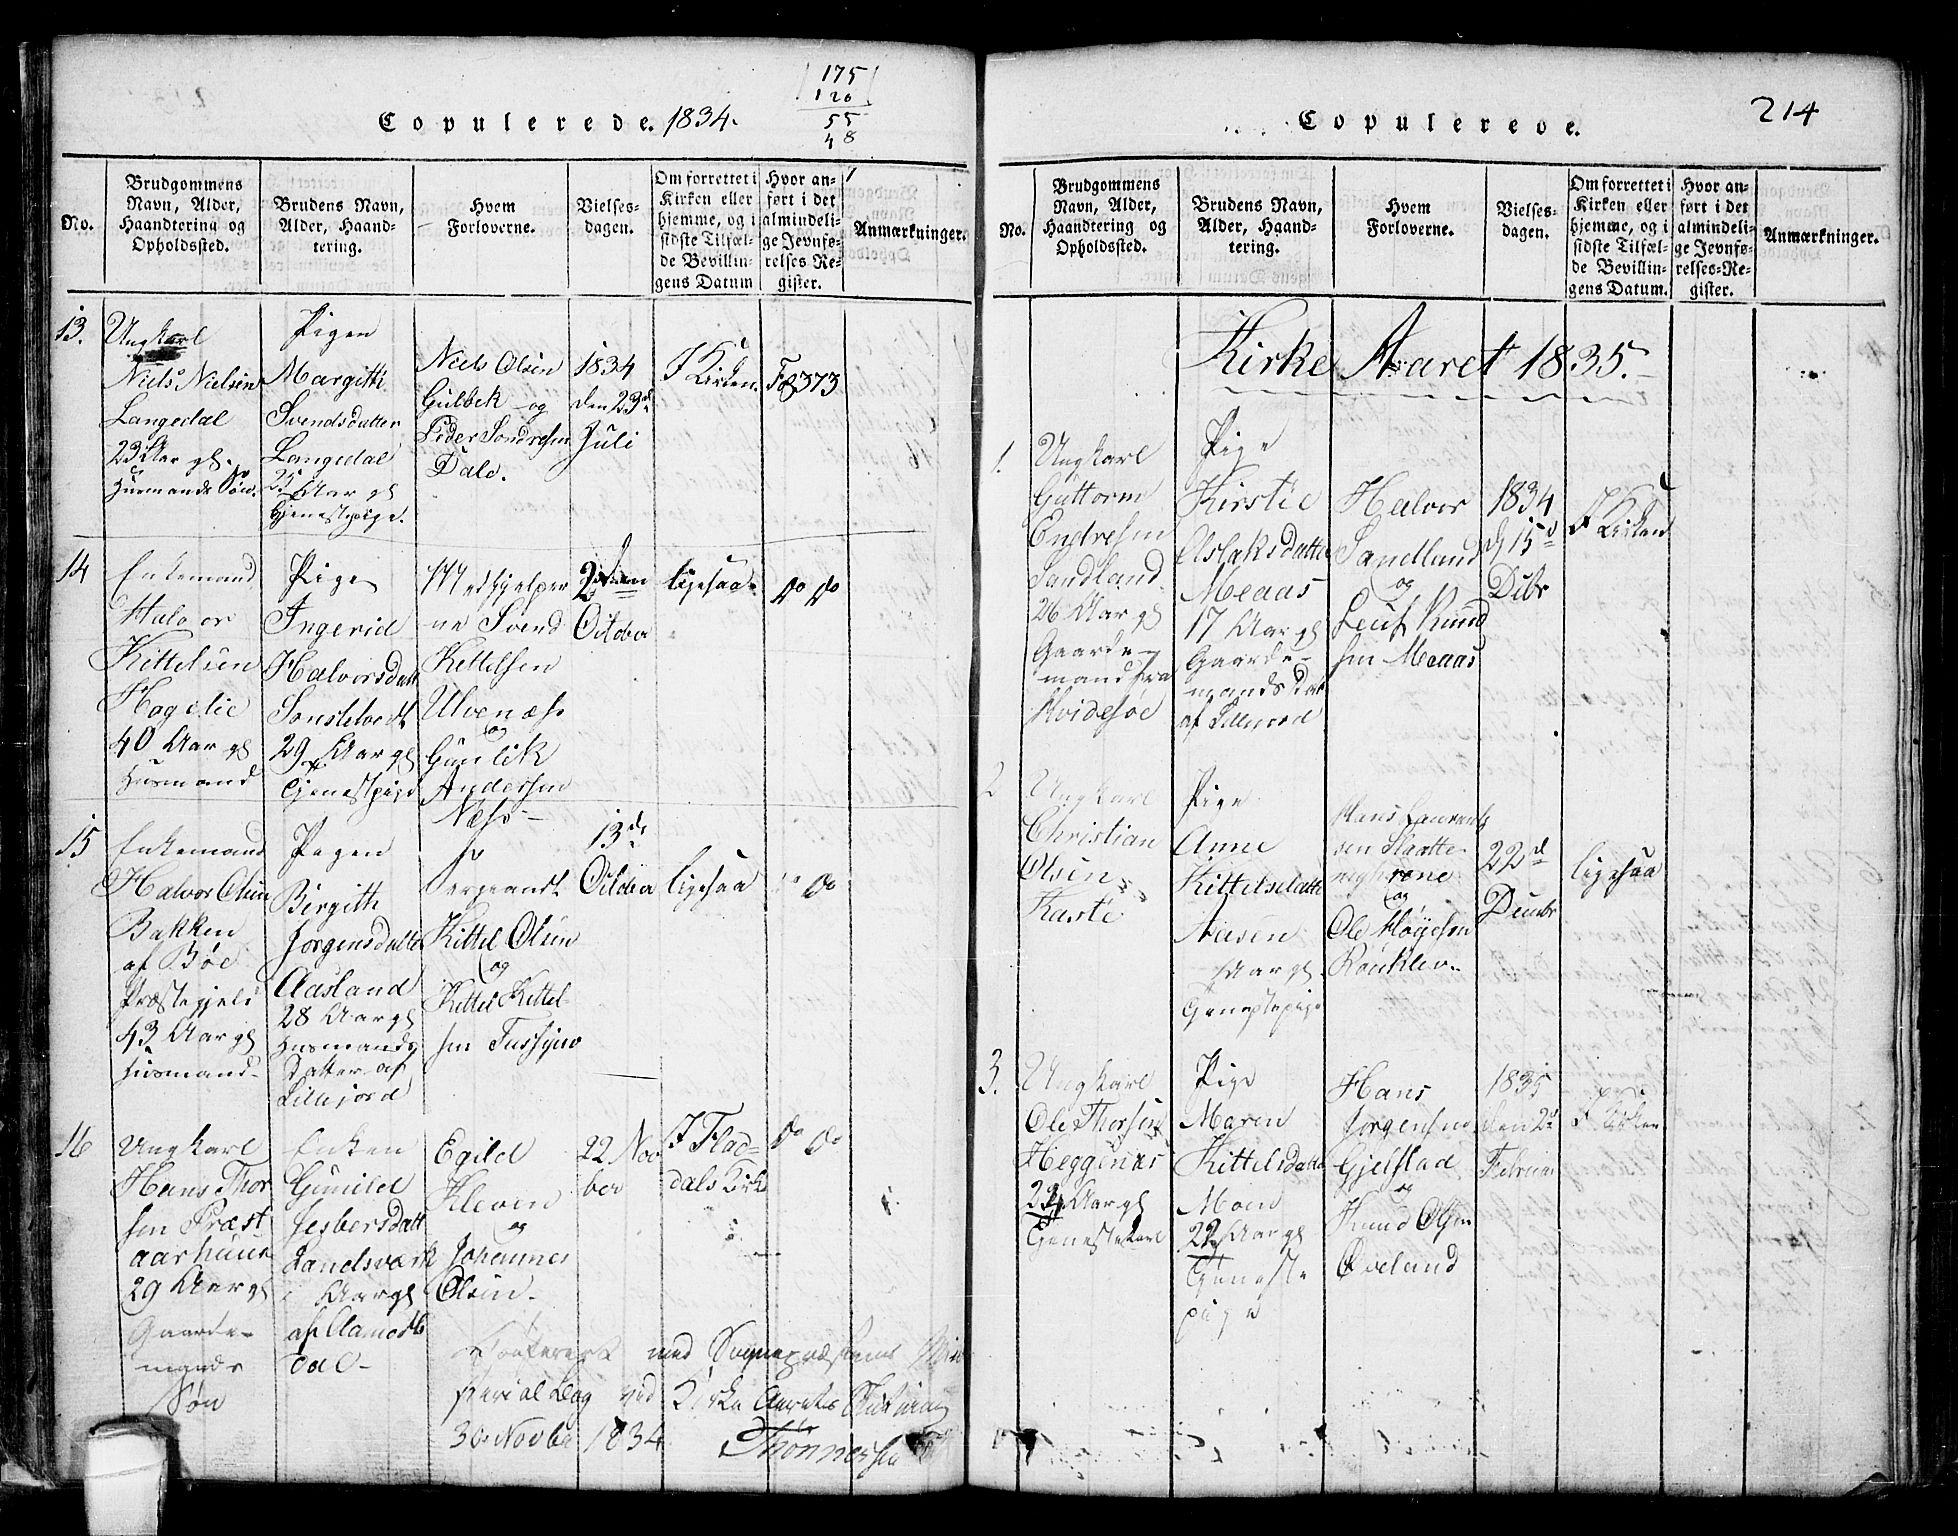 175
120
55
48
Copulerede. 1834.
No.
Brudgommens
Navn, Alder,
Haandtering og
Opholdssted.
Brudens Navn,
Alder, Haand-
tering.
Hvem
Forloverne.
Vielses-
dagen.
Om forrettet i
Kirken eller
hjemme, og i
sidste Tilfæl-
de Bevillin-
gens Datum
Hvor an-
ført i det
almindeli-
ge Jevnfø-
relses-Re-
gister.
Anmærkninger.
13.
Ungkarl
Niels Nielsen
Langedal
23 Aar gl.
Husmands Søn.
Pigen
Margith
Svendsdatter
Langedal
25 Aar gl
Tjenestpige.
Niels Olsen
Gulbek og
Peder Sondresen
Dale.
1834
den 23d
Juli
I Kirken.
Fol 373
14
Enkemand
Halvor
Kittelsen
Hogelie
40 Aar gl
Husmand
Pigen
Ingerid
Halvorsdatt
29 Aar gl
Tjenestpige
Medhjelper
ne Svend
Kettelsen
Ulvenæs
og
Gunlik
Andersen
Næs
October
ligesaa
do do
15
Enkemand
Halvor Olsen
Bakken
af Bøe
Præstegjeld
43 Aar gl
Husmand
Pigen
Birgith
Jorgensdatte
Aasland
28 Aar gl
Husmands
Datter af
Lillejord
Sergeandt
Kittel Olsen
og
Kittel Kittel-
sen
13de
October
ligesaa
do
16
Ungkarl
Hans Thor
sen Præst
aarhuus
29 Aar gl
Gaarde-
mands
Søn
Enken
Gunild
Jesbersdatt
Landsværk
Aar gl
af
dal
Egild
Kleven
og
Johannes
Olsen.
22 Nov
ber
I Flad-
dals Kirk
do do
med Sognepræstens
ved Kirke Aarets Slutning
30 Novbr 1834
Thønnessen
Copulerede.
214
No.
Brudgommens
Navn, Alder,
Haandtering og
Opholdssted.
Brudens Navn,
Alder, Haand-
tering.
Hvem
Forloverne.
Vielses-
dagen.
Om forrettet i
Kirken eller
hjemme, og i
sidste Tilfæl-
de Bevillin-
gens Datum.
Hvor an-
ført i det
almindeli-
ge Jevnfø-
relses-Re-
gister.
Anmærkninger.
Kirke Aaret 1835.
1.
Ungkarl
Guttorm
Endresen
Sandland
26 Aar gl
Gaarde-
mand fra
Hvidesøe
Pige
Kirstie
Aslaksdatte
Meaas
17 Aar gl
Gaarde-
mands Dat
af Lillejord
Halvor
Sandland
og
Leuf Knud
sen Meaas
1834
d 15d
Debr
I Kirken
2
Ungkarl
Christian
Olsen
Kaste
Pige
Anne
Kittelsdatte
Aasen
Aar gl
Tjenestepige
Hans Laurents
sen Slaatte
og
Ole Høyesen
22d
Decembr
ligesaa
3.
Ungkarl
Ole Thorsen
Heggenæs
24 Aar gl
Tjenestekarl
Pige
Maren
Kittelsdatte
Moen
22 Aar gl
Tjeneste
pige
Hans
Jorgensen
Gjelstad
og
Knud Olsen
Øveland
1835
den 2d
Februar
I Kirken